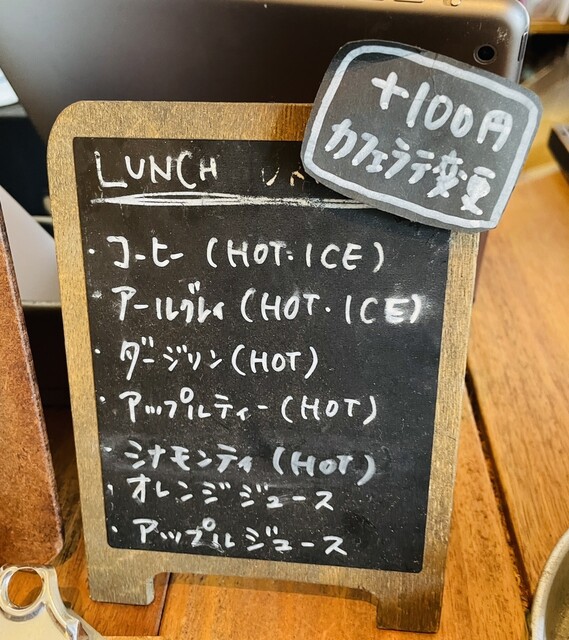 +100円
カフェラテ変更
LUNCH
・コーヒー (HOT・ICE)
アールグレイ (HOT・ICE)
・ダージリン (HOT)
・アップルティー (HOT)
・シナモンティ (HOT)
・オレンジジュース
・アップルジュース